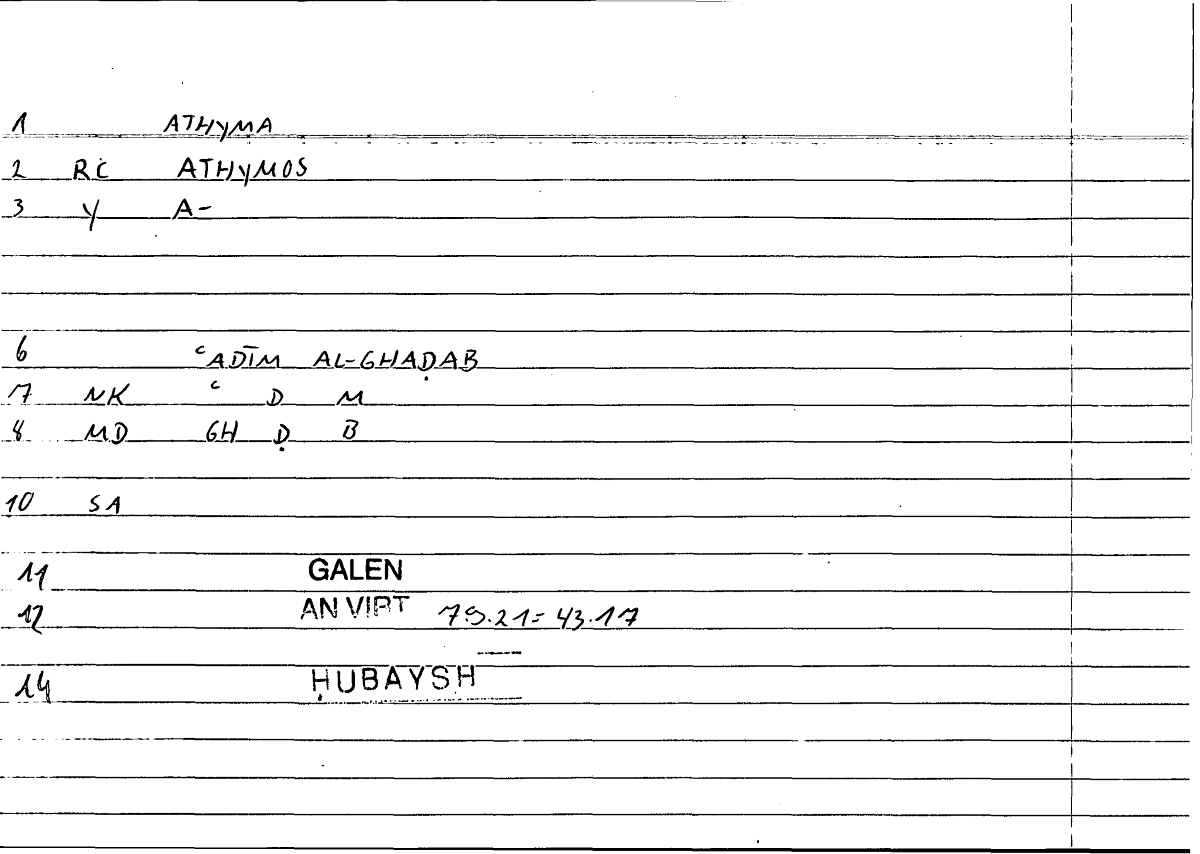 1 ATHYMA
2 RC ATHYMOS
3 Y A-
6 ʿADĪM AL-GHAḌAB
7 NK ʿ D M
8 MD GH Ḍ B
10 SA
11 GALEN
12 AN VIRT 79.21=43.17
14 ḤUBAYSH